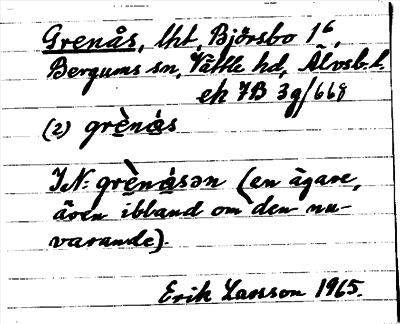 Grenås, lht, Bjőrsbo 1⁶,
Bergums sn, Vättle hd, Älvsb. l.
ek 7B 3g/668
(2) grèná̀s
IN: grèná̀sən (en ägare,
även ibland om den nu-
varande).
Erik Larsson 1965.